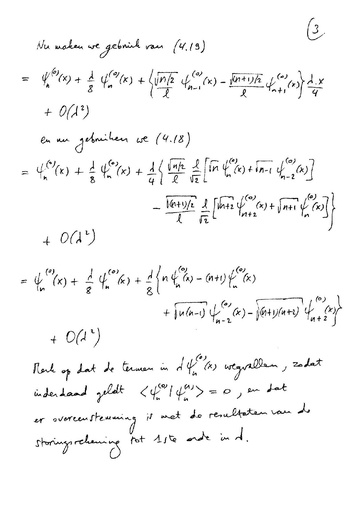 3
Nu maken we gebruik van (4.19)
= ψₙ⁽⁰⁾(x) + λ/8 ψₙ⁽⁰⁾(x) + { √(n/2)/ℓ ψₙ₋₁⁽⁰⁾(x) − √((n+1)/2)/ℓ ψₙ₊₁⁽⁰⁾(x) } λ.x/4
+ O(λ²)
en nu gebruiken we (4.18)
= ψₙ⁽⁰⁾(x) + λ/8 ψₙ⁽⁰⁾(x) + λ/4 { √(n/2)/ℓ ℓ/√2 [ √n ψₙ⁽⁰⁾(x) + √(n-1) ψₙ₋₂⁽⁰⁾(x) ]
− √((n+1)/2)/ℓ ℓ/√2 [ √(n+2) ψₙ₊₂⁽⁰⁾(x) + √(n+1) ψₙ⁽⁰⁾(x) ] }
+ O(λ²)
= ψₙ⁽⁰⁾(x) + λ/8 ψₙ⁽⁰⁾(x) + λ/8 { n ψₙ⁽⁰⁾(x) − (n+1) ψₙ⁽⁰⁾(x)
+ √(n(n-1)) ψₙ₋₂⁽⁰⁾(x) − √((n+1)(n+2)) ψₙ₊₂⁽⁰⁾(x) }
+ O(λ²)
Merk op dat de termen in λ ψₙ⁽⁰⁾(x) wegvallen, zodat
inderdaad geldt ⟨ψₙ⁽⁰⁾|ψₙ⁽¹⁾⟩ = 0, en dat
er overeenstemming is met de resultaten van de
storingsrekening tot 1ste orde in λ.